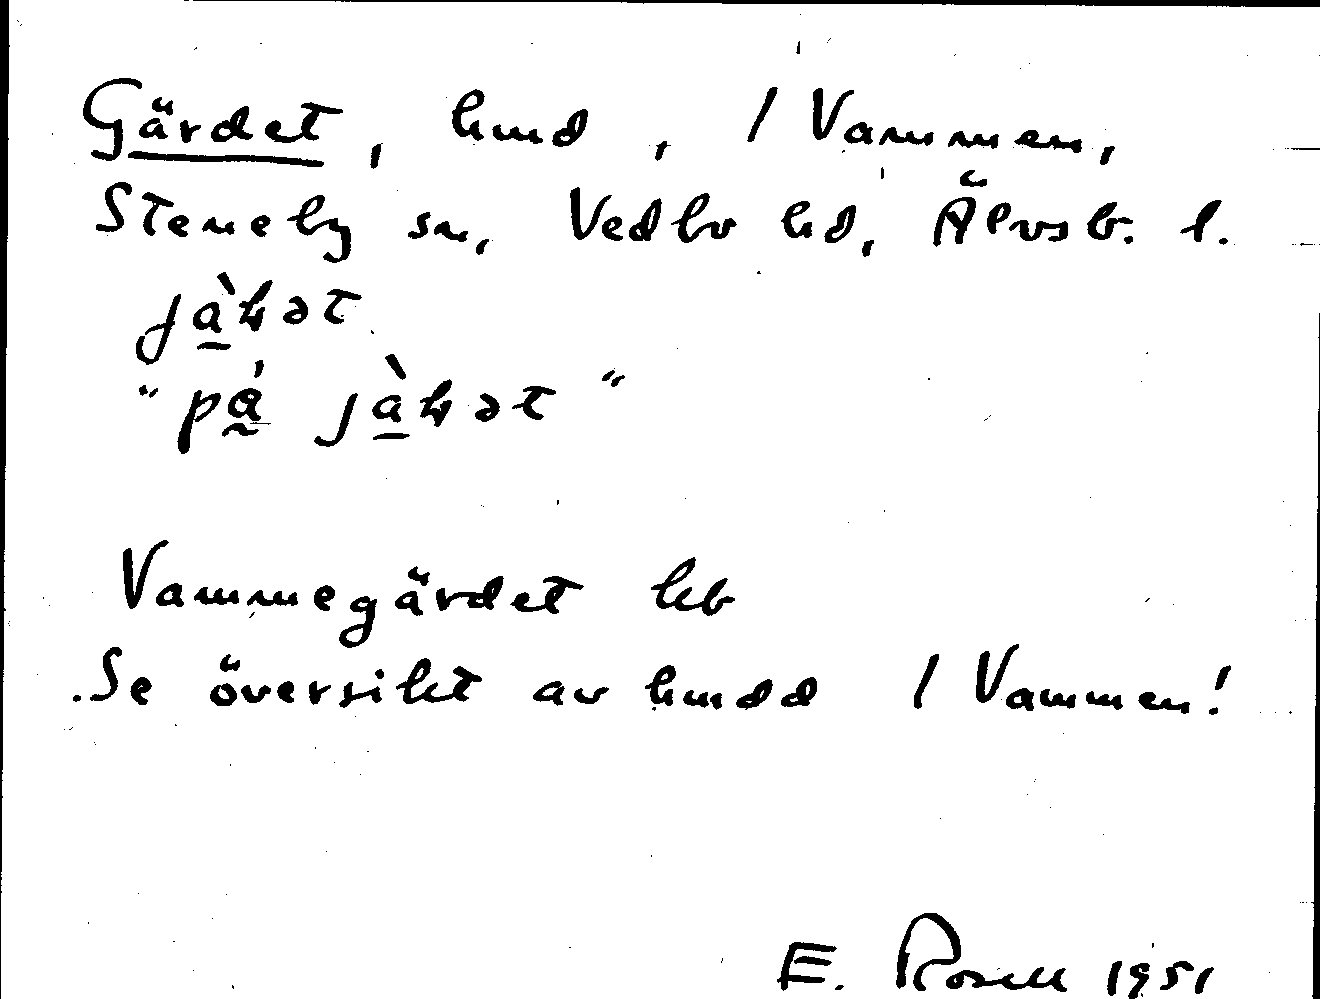 Gärdet, hmd, / Vammen,
Steneby sn, Vedbo hd, Älvsb. l.
jàɬət
"pá jàɬət"
Vammegärdet kb
Se översikt av hmdd / Vammen!
E. Rosell 1951